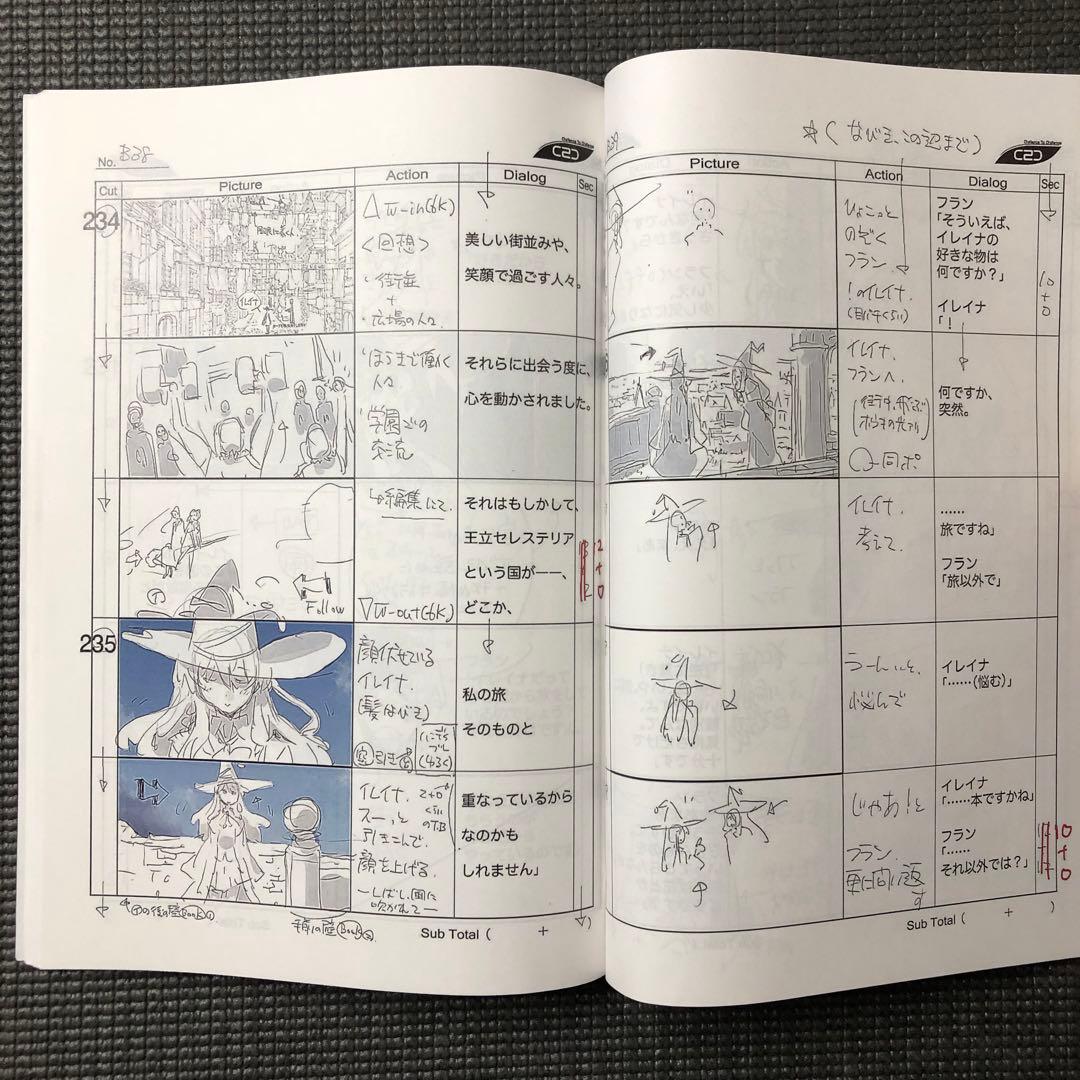 No. B38
Cut
Picture
Action
Dialog
Sec
234
W-in(6K)
<回想>
・街並
+
・広場の人々.
美しい街並みや、
笑顔で過ごす人々。
イレイナ
ほうきで働く
人々
学園での
交流
それらに出会う度に、
心を動かされました。
Follow
編集にて.
W-out(6K)
それはもしかして、
王立セレステリア
という国が――、
どこか、
235
顔伏せている
イレイナ.
(髪なびき)
私の旅
そのものと
イレイナ.
スーっと
引きこんで.
顔を上げる.
重なっているから
なのかも
しれません」
Sub Total ( + )
B39
☆(なびき、この辺まで)
C2C
Picture
Action
Dialog
Sec
ひょこっと
のぞく
フラン.
!のイレイナ.
フラン
「そういえば、
イレイナの
好きな物は
何ですか?」
イレイナ
「!
10
+
0
イレイナ.
フランへ.
同ポ
何ですか、
突然。
イレイナ.
考えて.
……
旅ですね」
フラン
「旅以外で」
うーんと、
悩んで
イレイナ
「……(悩む)」
じゃあ!と
フラン.
更に問い返す
イレイナ
「……本ですかね」
フラン
「……
それ以外では?」
10
+
0
Sub Total ( + )